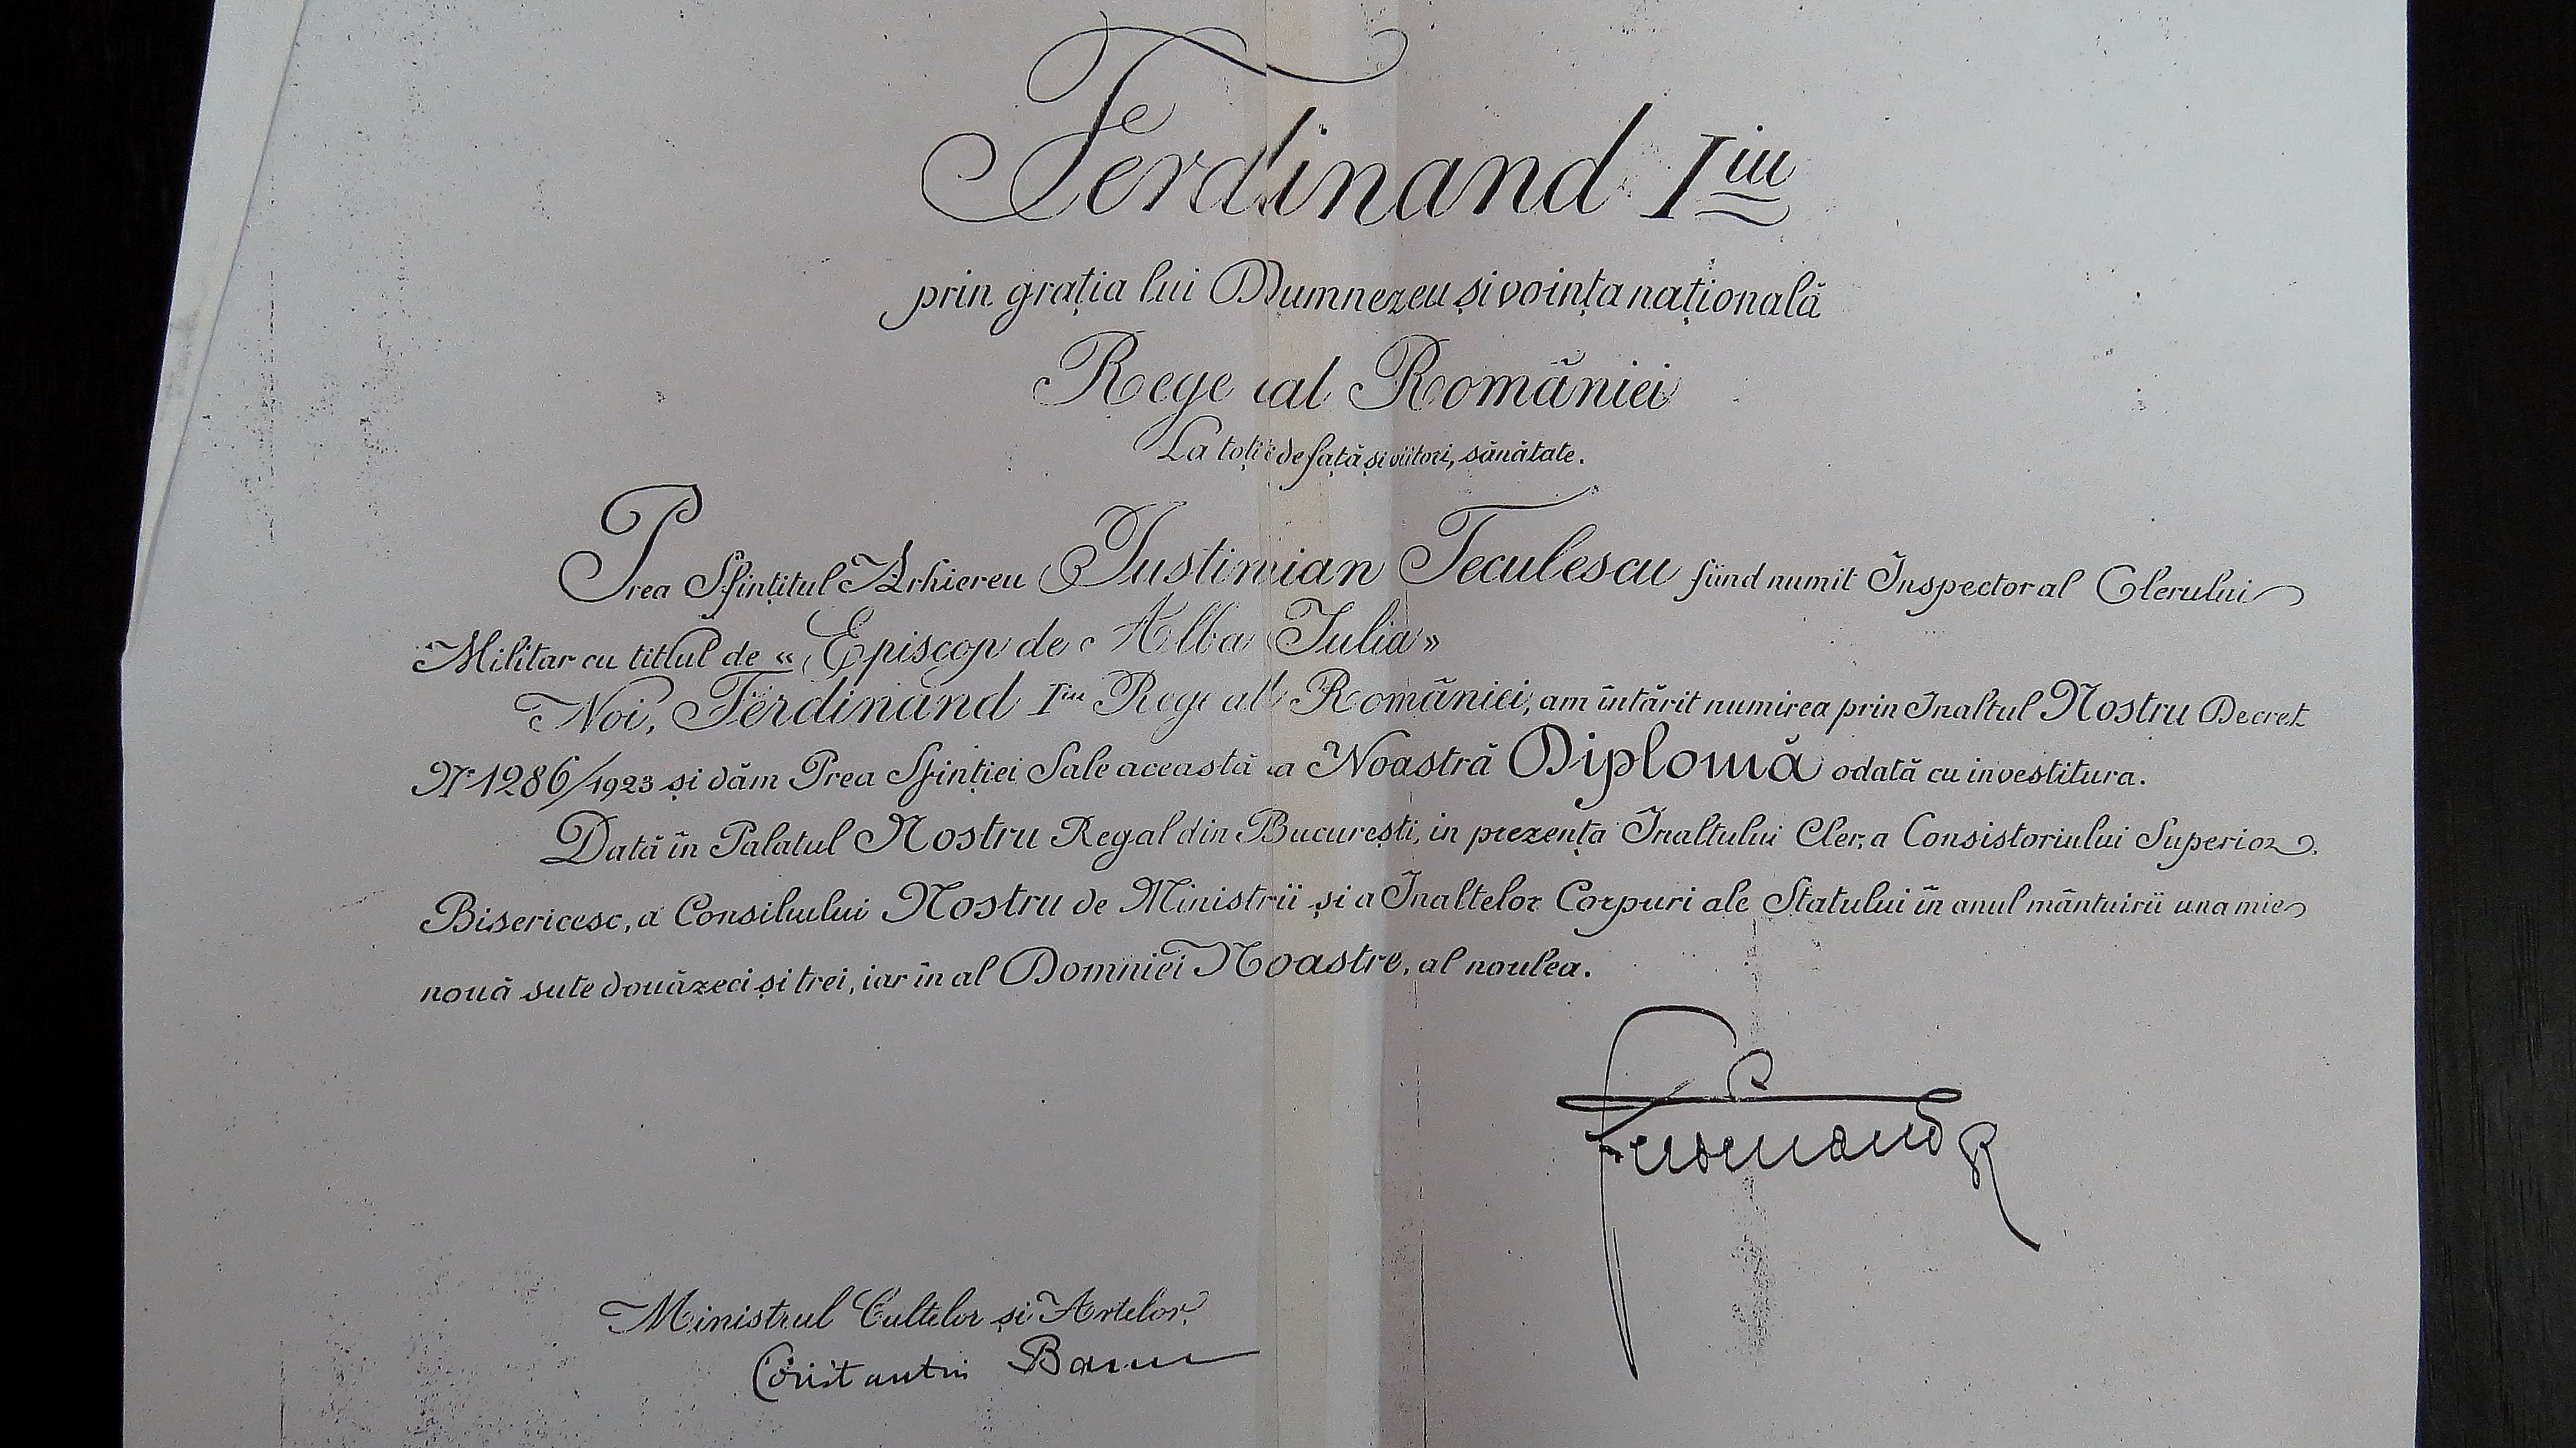 Ferdinand Iiu
prin grația lui Dumnezeu și voința națională
Rege al României
La toți de față și viitori, sănătate.
Prea Sfințitul Arhiereu Iustinian Teculescu fiind numit Inspector al Clerului
Militar cu titlul de «Episcop de Alba Iulia»
Noi, Ferdinand Iiu Rege al României, am întărit numirea prin Inaltul Nostru Decret
Nr 1286/1923 și dăm Prea Sfinției Sale această a Noastră Diplomă odată cu investitura.
Dată în Palatul Nostru Regal din București, in prezența Inaltului Cler, a Consistoriului Superior
Bisericesc, a Consiliului Nostru de Miniștrii și a Inaltelor Corpuri ale Statului în anul mântuirii una mie
nouă sute douăzeci și trei, iar în al Domniei Noastre, al noulea.
Ferdinand R
Ministrul Cultelor și Artelor,
Constantin Banu